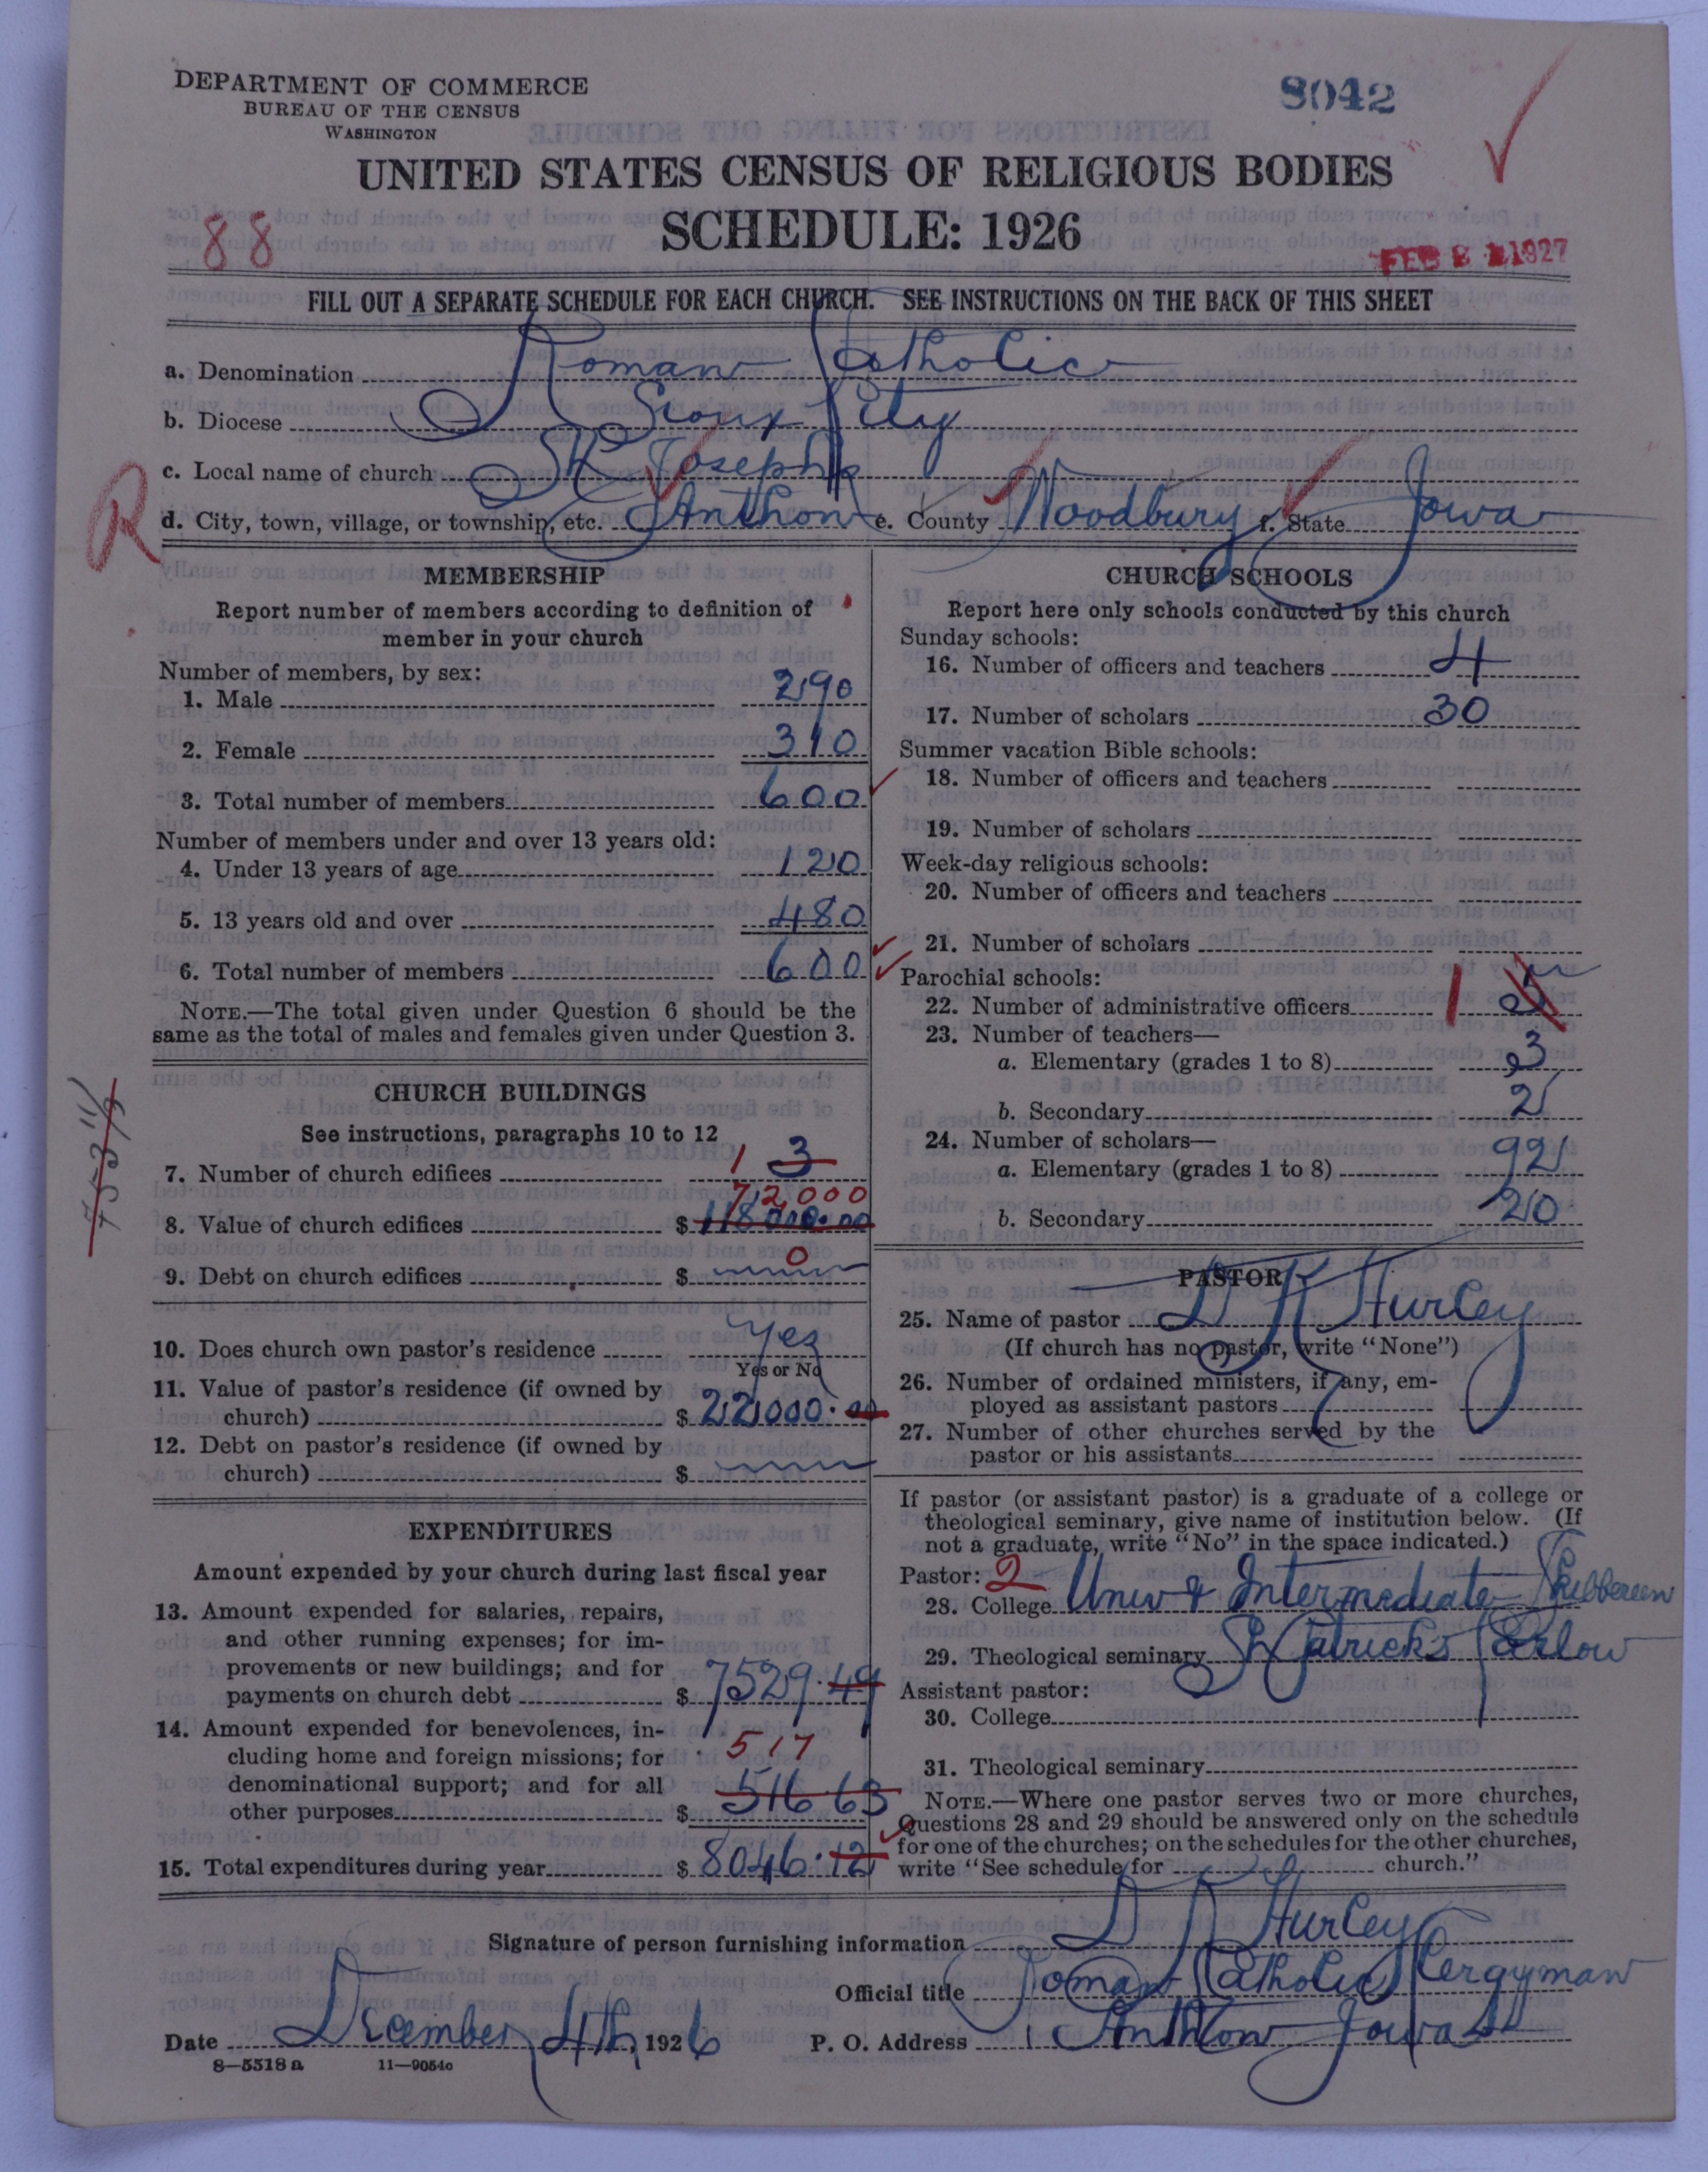 DEPARTMENT OF COMMERCE
BUREAU OF THE CENSUS
WASHINGTON
8042
UNITED STATES CENSUS OF RELIGIOUS BODIES
SCHEDULE: 1926
88
FEB 2 1927
FILL OUT A SEPARATE SCHEDULE FOR EACH CHURCH. SEE INSTRUCTIONS ON THE BACK OF THIS SHEET
a. Denomination Roman Catholic
b. Diocese Sioux City
c. Local name of church St Joseph
R
d. City, town, village, or township, etc. Anthon e. County Woodbury f. State Iowa
MEMBERSHIP
Report number of members according to definition of
member in your church
Number of members, by sex:
1. Male 290
2. Female 310
3. Total number of members 600
Number of members under and over 13 years old:
4. Under 13 years of age 120
5. 13 years old and over 480
6. Total number of members 600
NOTE.—The total given under Question 6 should be the
same as the total of males and females given under Question 3.
CHURCH BUILDINGS
See instructions, paragraphs 10 to 12
7. Number of church edifices 1 3
72000
8. Value of church edifices $ 118000.00
0
9. Debt on church edifices $
10. Does church own pastor's residence Yes
Yes or No
11. Value of pastor's residence (if owned by
church) $ 22000.00
12. Debt on pastor's residence (if owned by
church) $
EXPENDITURES
Amount expended by your church during last fiscal year
13. Amount expended for salaries, repairs,
and other running expenses; for im-
provements or new buildings; and for
payments on church debt $ 7529.49
14. Amount expended for benevolences, in-
cluding home and foreign missions; for 517
denominational support; and for all
other purposes $ 516 63
15. Total expenditures during year $ 8046.12
CHURCH SCHOOLS
Report here only schools conducted by this church
Sunday schools:
16. Number of officers and teachers 4
17. Number of scholars 30
Summer vacation Bible schools:
18. Number of officers and teachers
19. Number of scholars
Week-day religious schools:
20. Number of officers and teachers
21. Number of scholars
Parochial schools:
22. Number of administrative officers 1
23. Number of teachers—
a. Elementary (grades 1 to 8) 3
b. Secondary 2
24. Number of scholars—
a. Elementary (grades 1 to 8) 92
b. Secondary 20
PASTOR
25. Name of pastor D K Hurley
(If church has no pastor, write "None")
26. Number of ordained ministers, if any, em-
ployed as assistant pastors
27. Number of other churches served by the
pastor or his assistants
If pastor (or assistant pastor) is a graduate of a college or
theological seminary, give name of institution below. (If
not a graduate, write "No" in the space indicated.)
Pastor: 2
28. College Univ & Intermediate Skibbereen
29. Theological seminary St Patricks Carlow
Assistant pastor:
30. College
31. Theological seminary
NOTE.—Where one pastor serves two or more churches,
Questions 28 and 29 should be answered only on the schedule
for one of the churches; on the schedules for the other churches,
write "See schedule for church."
Signature of person furnishing information D K Hurley
Official title Roman Catholic Clergyman
Date December 4th, 1926 P. O. Address Anthon Iowa
8—5518 a 11—9054c